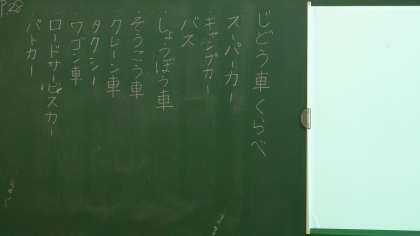 P28
じどう車くらべ
・スーパーカー
・キャンプカー
・バス
・しょうぼう車
・そうこう車
・クレーン車
・タクシー
・ワゴン車
・ロードサービスカー
・パトカー